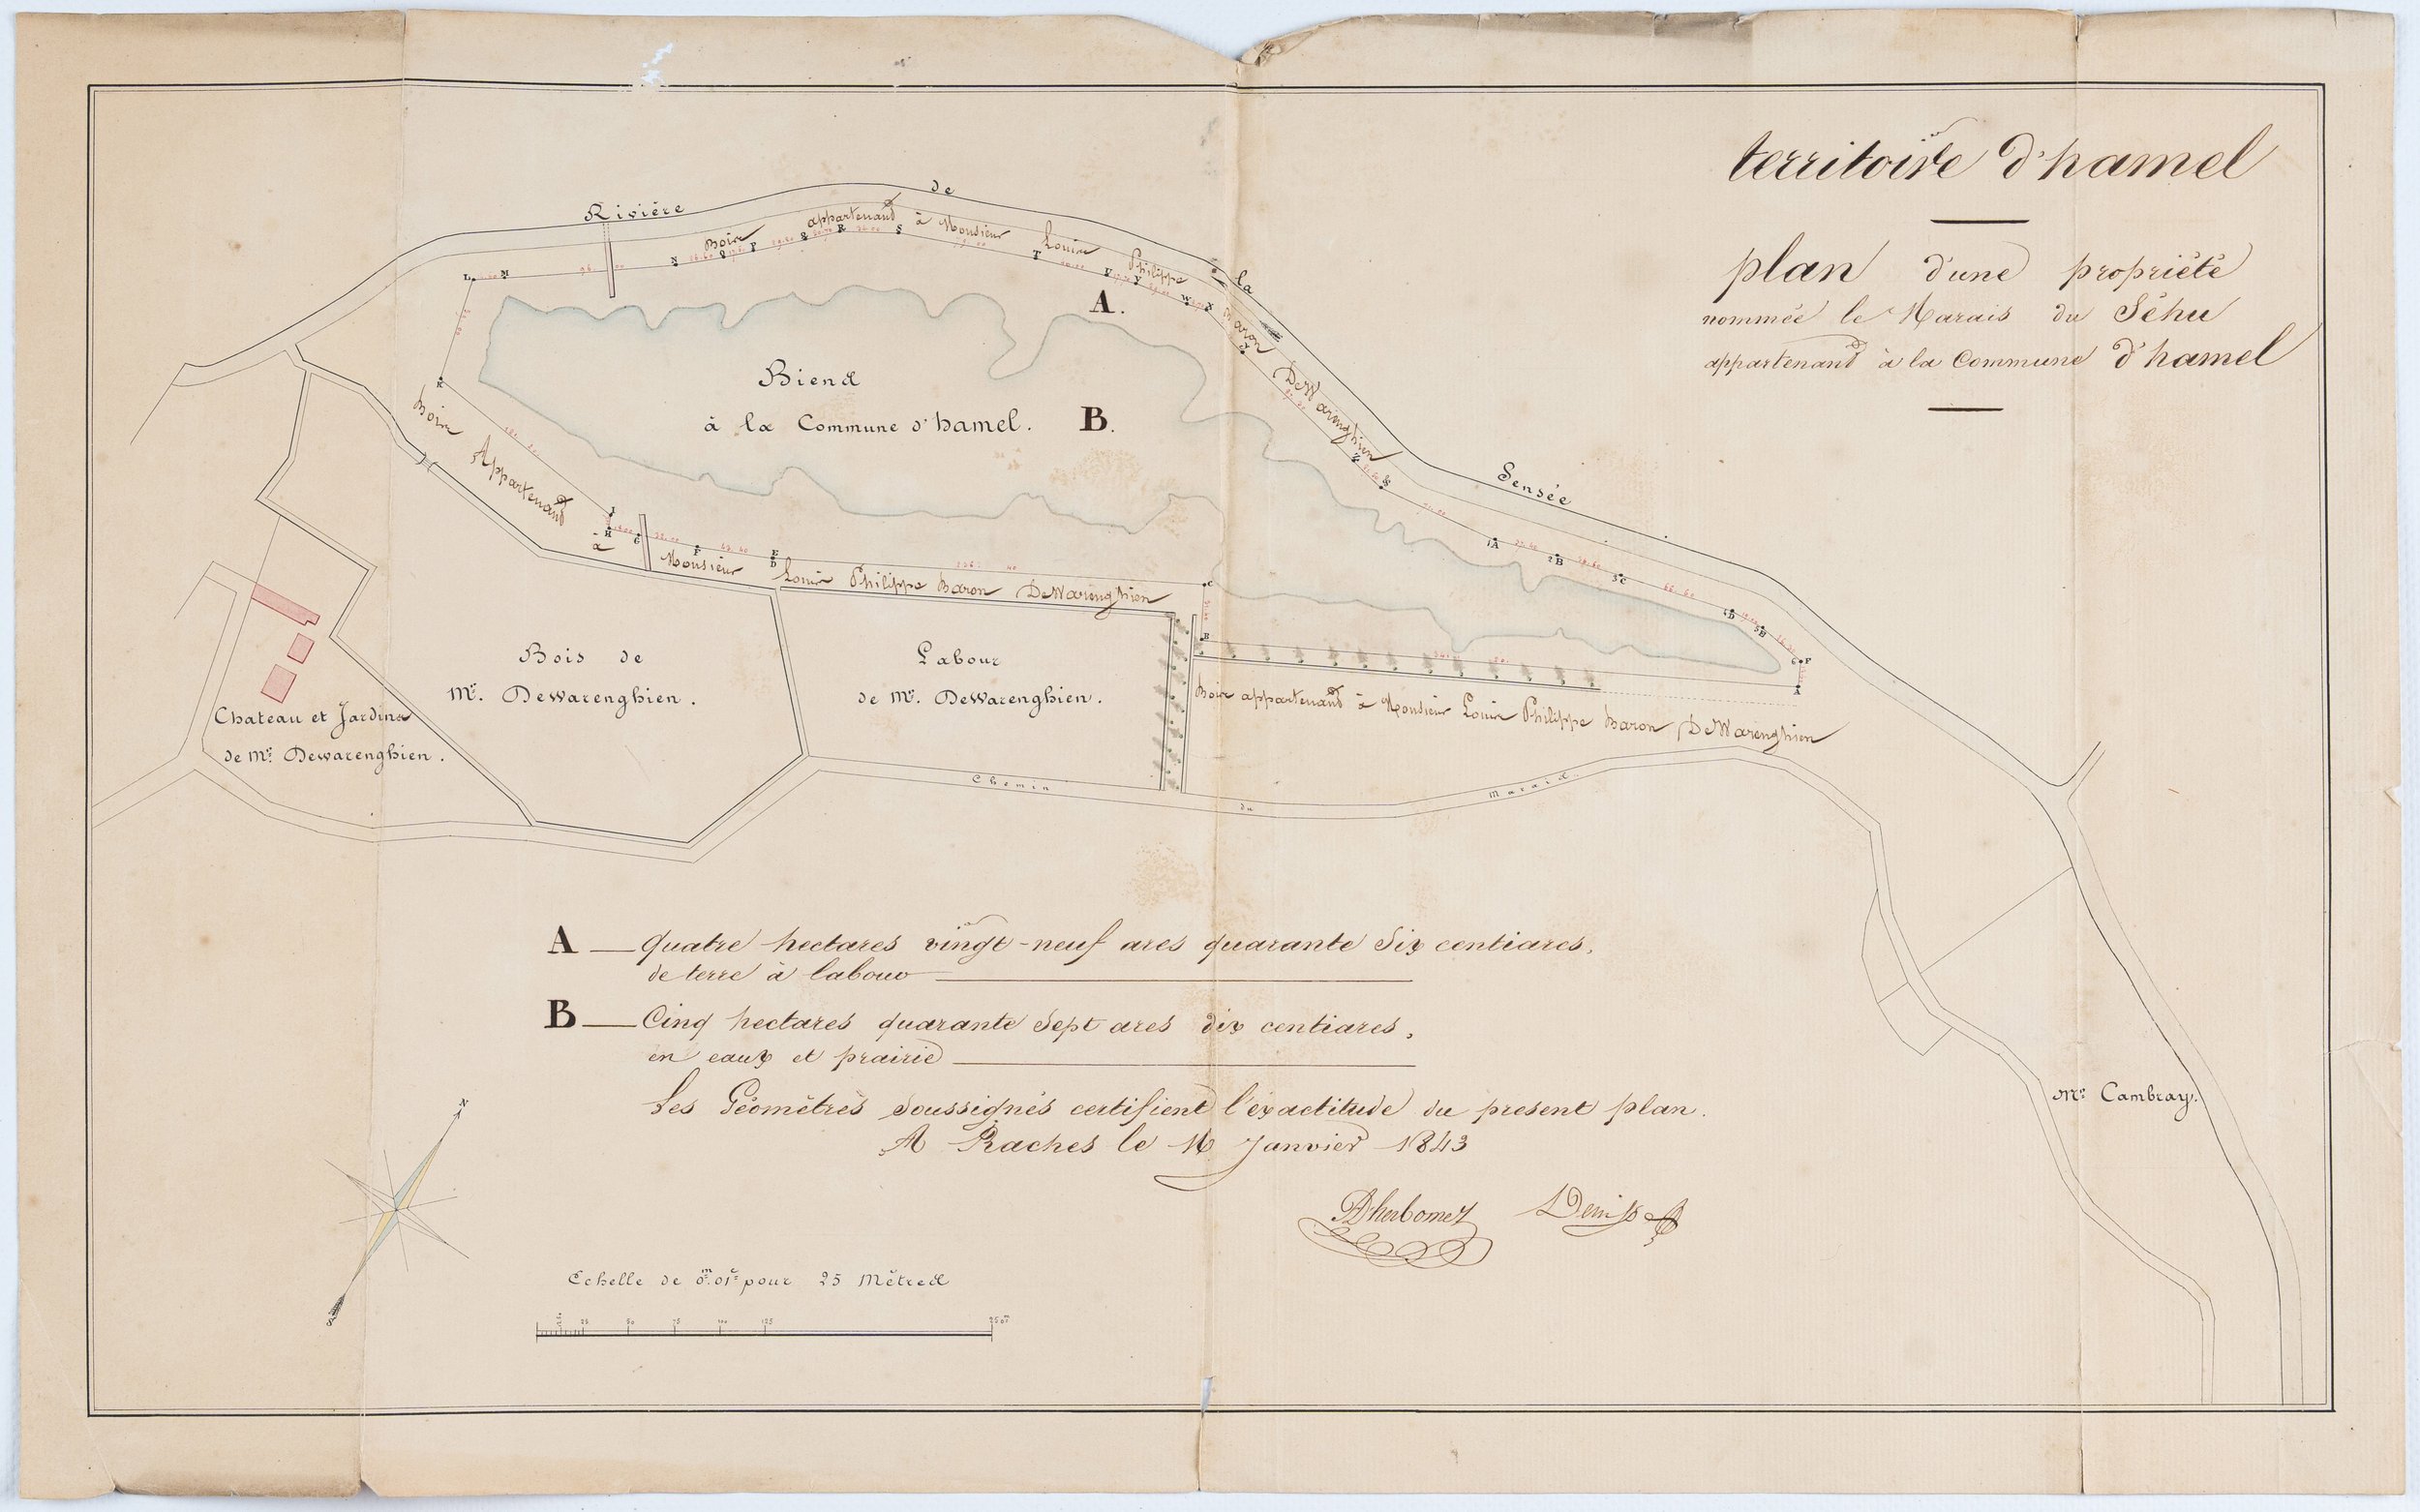 territoire d'hamel
plan d'une propriété
nommée le Marais du Séhu
appartenant à la Commune d'hamel
Rivière de la Sensée
Bois appartenant à Monsieur Louis Philippe Baron DeWarenghien
A.
Biens
à la Commune d'hamel. B.
Bois Appartenant à Monsieur Louis Philippe Baron DeWarenghien
Bois de
Mr. Dewarenghien.
Labour
de Mr. DeWarenghien.
Bois appartenant à Monsieur Louis Philippe Baron DeWarenghien
Chateau et Jardins
de Mr. Dewarenghien.
Chemin du Marais
A — Quatre hectares vingt-neuf ares quarante six centiares,
de terre à labour
B — Cinq hectares quarante sept ares dix centiares,
en eaux et prairie
Les Géomètres soussignés certifient l'exactitude du present plan.
A Raches le 16 Janvier 1843
Dherbomez
Mr. Cambray.
N
S
Echelle de 0m.01c pour 25 Mètres
25 50 75 100 125 250m